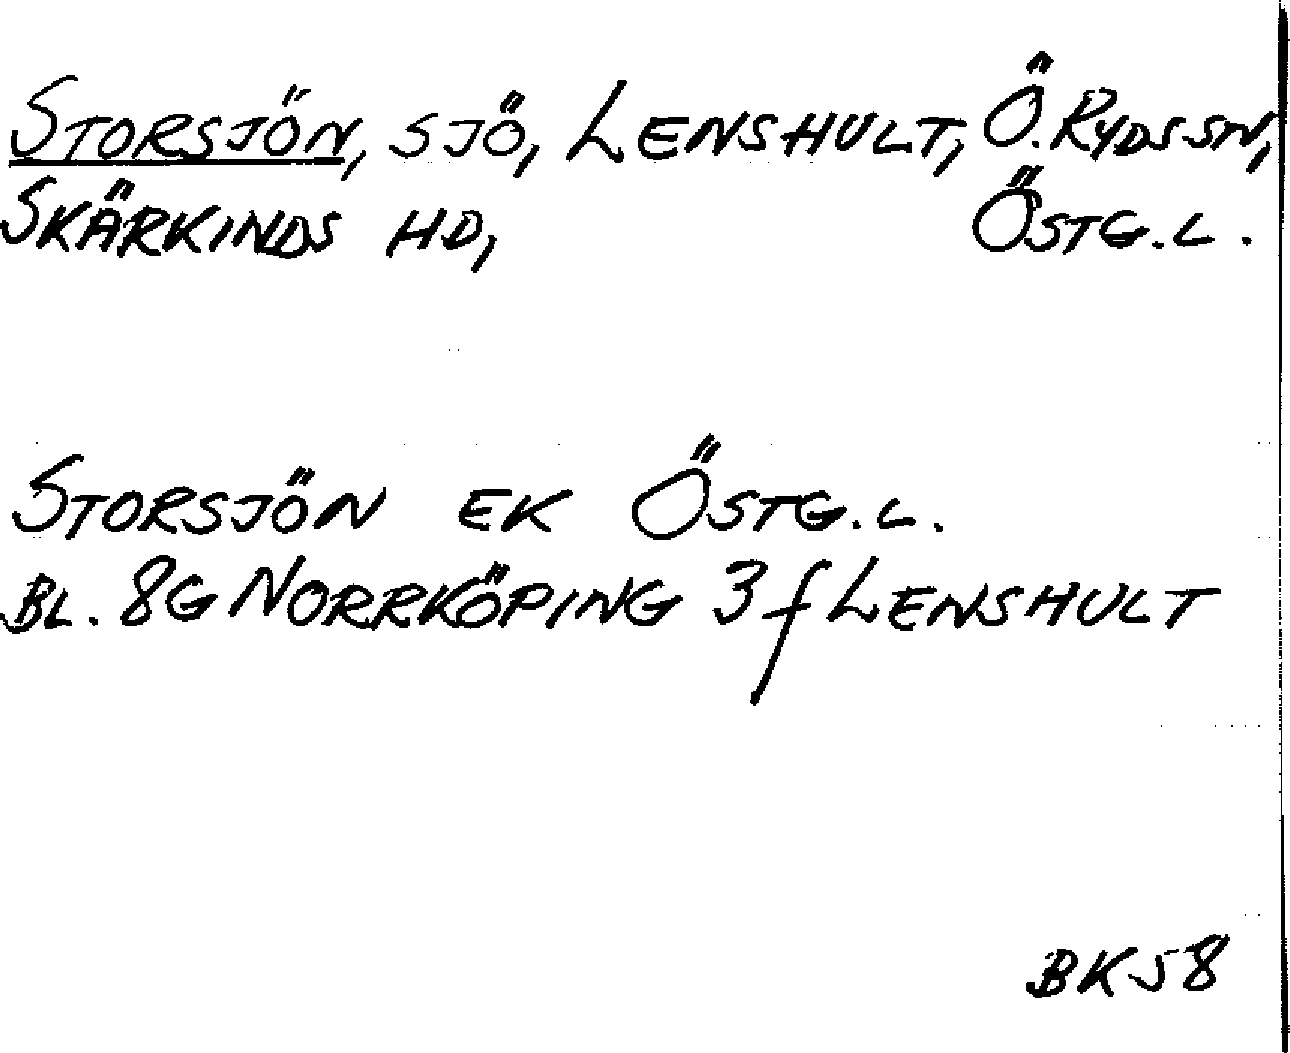 STORSJÖN, SJÖ, LENSHULT, Ö. RYDS SN,
SKÄRKINDS HD, ÖSTG. L.
STORSJÖN EK ÖSTG. L.
BL. 8G NORRKÖPING 3f LENSHULT
BK58